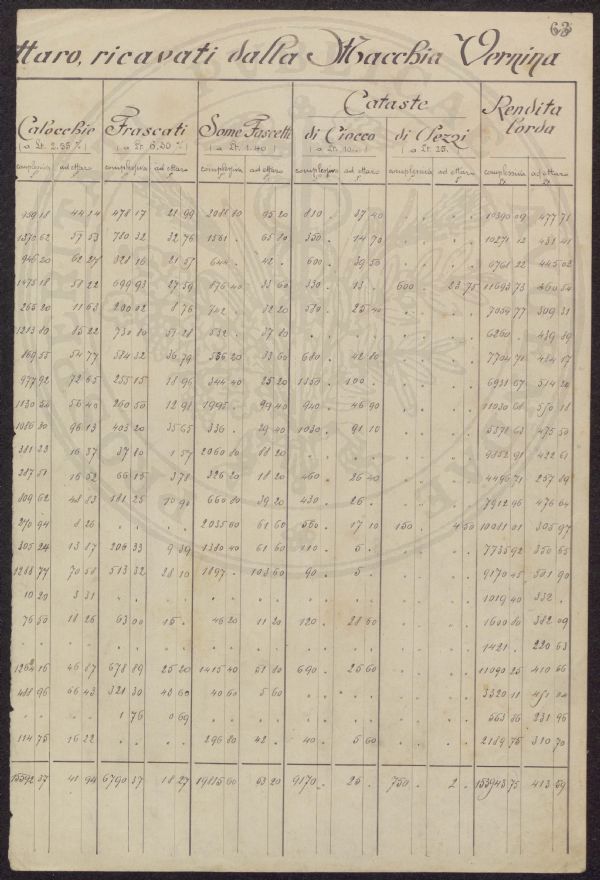 63
ttaro, ricavati dalla Macchia Vernina
Calocchie Frascati Some Fascetti Cataste Rendita lorda
(a Lt. 2.35 %) (a Lt. 6.30 %) (a Lt. 1.40) di Ciocco di Pezzi
(a Lt. 10..) (a Lt. 25.)
complessiva ad ettaro complessiva ad ettaro complessiva ad ettaro complessiva ad ettaro complessiva ad ettaro complessiva ad ettaro
44 14 478 17 21 99 2088 80 95 20 810 . 37 40 . . . . 10390 09 477 71
1370 62 57 53 780 32 32 76 1561 . 65 80 350 . 14 70 . . . . 10271 12 431 41
946 20 62 27 328 16 21 57 644 . 42 . 600 . 39 50 . . . . 6761 22 445 02
1475 18 58 22 699 93 27 59 876 40 33 60 330 . 13 . 600 . 23 75 11693 73 460 54
265 20 11 63 200 02 8 76 742 . 32 20 580 . 25 40 . . . . 7054 77 309 31
1213 80 85 22 730 80 51 28 532 . 37 80 . . . . . . 6260 . 439 39
869 55 54 77 584 32 36 79 536 20 33 60 680 . 42 80 . . . . 7704 71 484 17
977 92 72 65 255 15 18 96 344 40 25 20 1350 . 100 . . . . . 6931 67 514 20
1130 54 56 40 260 50 12 98 1995 . 99 40 940 . 46 90 . . . . 11030 68 550 18
1086 30 96 13 403 20 35 65 336 . 29 40 1030 . 91 10 . . . . 5378 63 475 50
381 23 16 37 37 80 1 57 2060 80 88 20 . . . . . . . . 9852 91 432 61
287 51 16 32 66 15 3 78 326 20 18 20 460 . 26 40 . . . . 4496 71 257 89
809 62 48 83 181 25 10 90 660 80 39 20 430 . 26 . . . . . 7912 96 476 64
270 94 8 26 . . . . 2035 60 61 60 560 . 17 10 150 . 4 50 10081 01 305 97
305 24 13 87 206 33 9 39 1380 40 61 60 110 . 5 . . . . . 7735 92 350 65
1288 77 70 58 513 32 28 10 1897 . 103 60 90 . 5 . . . . . 9170 45 501 90
10 20 3 31 . . . . . . . . . . . . . . . . 1019 40 332 .
76 50 18 26 63 00 15 . 46 20 11 20 120 . 28 60 . . . . 1600 80 382 09
1421 . 220 63
1264 16 46 87 678 89 25 20 1415 40 51 80 690 . 25 60 . . . . 11090 25 410 66
488 96 66 43 321 30 43 60 40 60 5 60 . . . . . . . . 3320 11 451 04
. . . . 1 76 0 69 . . . . . . . . . . . . 563 86 231 96
114 75 16 22 . . . . 296 80 42 . 40 . 5 60 . . . . 2189 75 310 70
15592 37 41 94 6790 37 18 27 19815 60 53 20 9170 . 25 . 750 . 2 . 153943 75 413 59